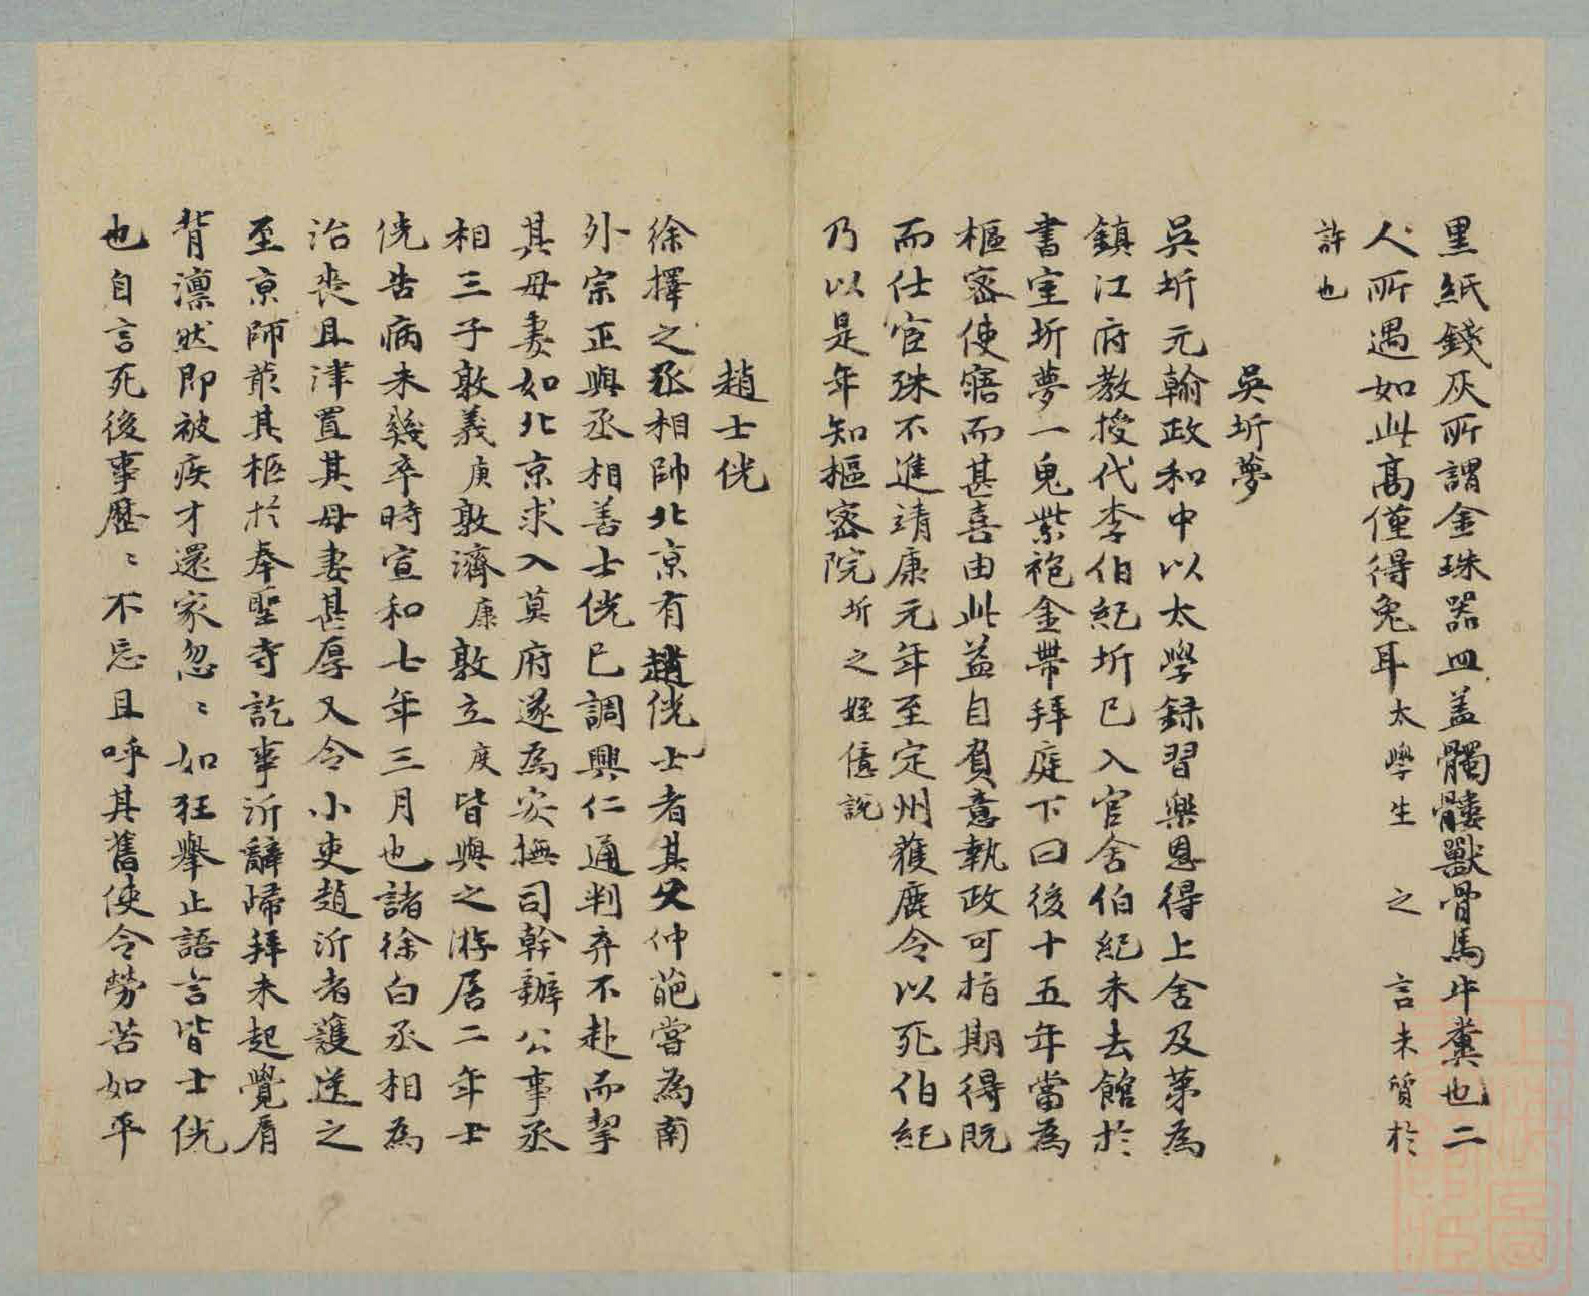 黑紙錢灰所謂金珠器皿盖髑髏獸骨馬牛糞也二
人所遇如此髙僅得免耳太學生之言未質於
許也
吳圻夢
吳圻元翰政和中以太學録習樂恩得上舍及苐為
鎮江府教授代李伯紀圻已入官舍伯紀未去館於
書室圻夢一鬼紫袍金帶拜庭下曰後十五年當為
樞密使寤而甚喜由此益自負意執政可指期得既
而仕宦殊不進靖康元年至定州獲鹿令以死伯紀
乃以是年知樞密院圻之姪億説
趙士侊
徐擇之丞相帥北京有趙侊士者其父仲葩嘗為南
外宗正與丞相善士侊已調興仁通判弃不赴而挈
其母妻如北京求入莫府遂為安撫司幹辦公事丞
相三子敦義庚敦濟康敦立度皆與之游居二年士
侊告病未幾卒時宣和七年三月也諸徐白丞相為
治喪且津置其母妻甚厚又令小吏趙沂者護送之
至京師菆其柩於奉聖寺訖事沂辭歸拜未起覺肩
背凛然即被疾才還家忽〻如狂舉止語言皆士侊
也自言死後事歷〻不忘且呼其舊使令勞苦如平